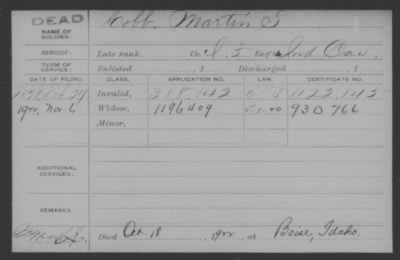 DEAD
NAME OF SOLDIER: Cobb Martin S
SERVICE: Late rank, Co. Reg't Ind Cav.
TERM OF SERVICE: Enlisted , 1 Discharged , 1
DATE OF FILING. CLASS. APPLICATION NO. LAW. CERTIFICATE NO.
Invalid, 218,142 1122,142
1922, Nov. 6 Widow, 1196409 5-1-20 930766
Minor,
ADDITIONAL SERVICES:
REMARKS:
Died Oct. 18 , 1922, at Boise, Idaho.